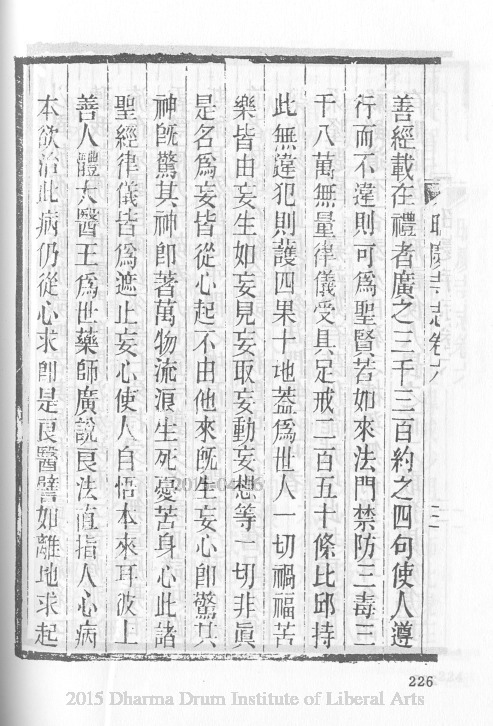 昭慶寺志卷六
善經載在禮者廣之三千三百約之四句使人遵
行而不違則可爲聖賢若如來法門禁防三毒三
千八萬無量律儀受具足戒二百五十條比邱持
此無違犯則護四果十地葢爲世人一切禍福苦
樂皆由妄生如妄見妄取妄動妄想等一切非眞
是名爲妄皆從心起不由他來旣生妄心卽驚其
神旣驚其神卽著萬物流浪生死憂苦身心此諸
聖經律儀皆爲遮止妄心使人自悟本來耳彼上
善人體大醫王爲世藥師廣說良法直指人心病
本欲治此病仍從心求卽是良醫譬如離地求起
226
2015 Dharma Drum Institute of Liberal Arts